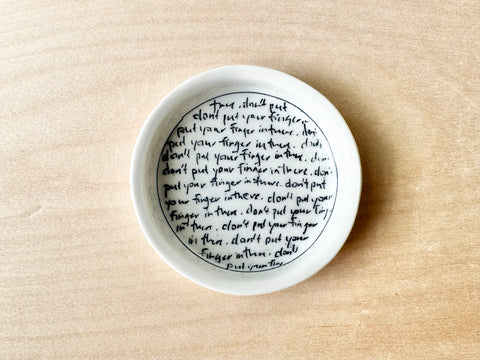 there. don't put
don't put your finger.
put your finger in there. don
put your finger in there. don't
don't put your finger in there. don
don't put your finger in there. don
put your finger in there. don't put
your finger in there. don't put your
finger in there. don't put your fing
in there. don't put your finger
in there. don't put your
finger in there. don't
put your fing